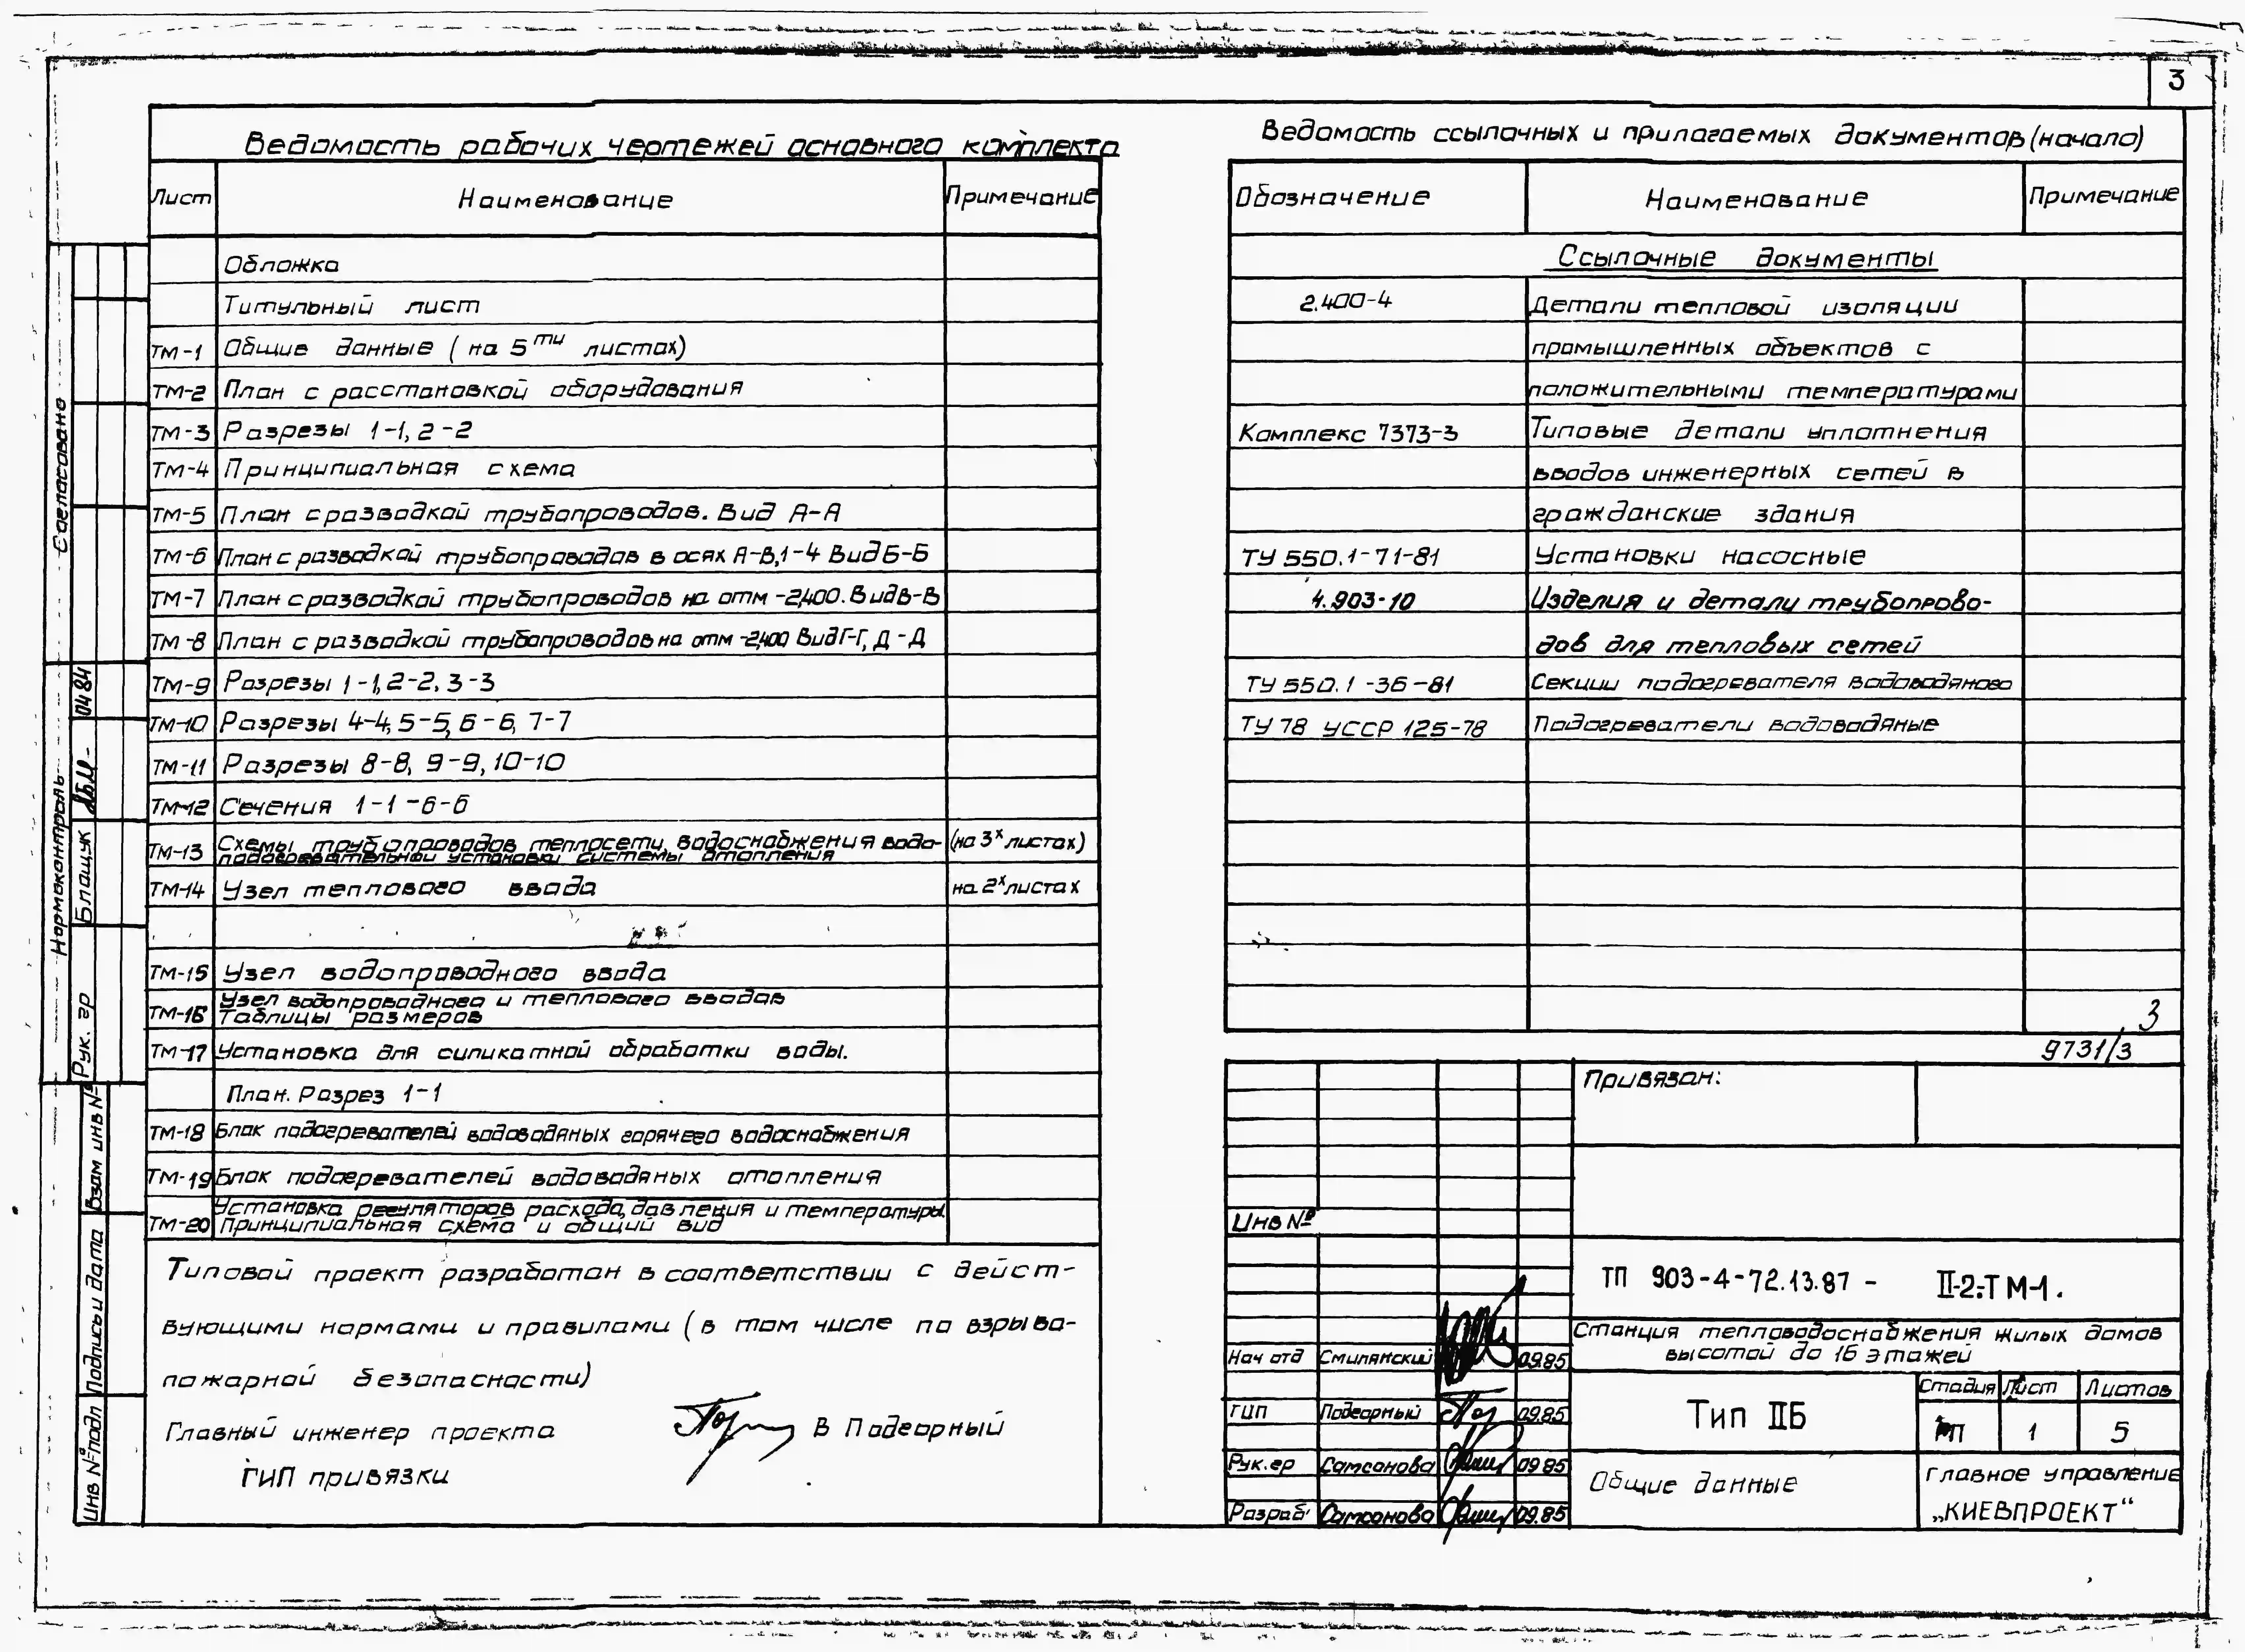 3
Ведомость рабочих чертежей основного комплекта
Лист Наименование Примечание
Обложка
Титульный лист
ТМ-1 Общие данные (на 5ти листах)
ТМ-2 План с расстановкой оборудования
ТМ-3 Разрезы 1-1, 2-2
ТМ-4 Принципиальная схема
ТМ-5 План с разводкой трубопроводов. Вид А-А
ТМ-6 План с разводкой трубопроводов в осях А-В,1-4 Вид Б-Б
ТМ-7 План с разводкой трубопроводов на отм -2,400. Вид В-В
ТМ-8 План с разводкой трубопроводов на отм -2,400 Вид Г-Г, Д-Д
ТМ-9 Разрезы 1-1, 2-2, 3-3
ТМ-10 Разрезы 4-4, 5-5, 6-6, 7-7
ТМ-11 Разрезы 8-8, 9-9, 10-10
ТМ-12 Сечения 1-1-6-6
ТМ-13 Схемы трубопроводов теплосети, водоснабжения водо- (на 3х листах)
подогревательной установки системы отопления
ТМ-14 Узел теплового ввода на 2х листах
ТМ-15 Узел водопроводного ввода
ТМ-16 Узел водопроводного и теплового вводов
Таблицы размеров
ТМ-17 Установка для силикатной обработки воды.
План. Разрез 1-1
ТМ-18 Блок подогревателей водоводяных горячего водоснабжения
ТМ-19 Блок подогревателей водоводяных отопления
ТМ-20 Установка регуляторов расхода, давления и температуры.
Принципиальная схема и общий вид
Типовой проект разработан в соответствии с дейст-
вующими нормами и правилами (в том числе по взрыво-
пожарной безопасности)
Главный инженер проекта В Подгорный
ГИП привязки
Ведомость ссылочных и прилагаемых документов (начало)
Обозначение Наименование Примечание
Ссылочные документы
2.400-4 Детали тепловой изоляции
промышленных объектов с
положительными температурами
Комплекс 7373-3 Типовые детали уплотнения
вводов инженерных сетей в
гражданские здания
ТУ 550.1-71-81 Установки насосные
4.903-10 Изделия и детали трубопрово-
дов для тепловых сетей
ТУ 550.1-36-81 Секции подогревателя водоводяного
ТУ 78 УССР 125-78 Подогреватели водоводяные
3
9731/3
Привязан:
Инв №
ТП 903-4-72.13.87 - II-2-ТМ-1.
Станция тепловодоснабжения жилых домов
высотой до 16 этажей
Нач отд Смилянский 09.85
ГИП Подгорный 09.85
Рук.гр Самсонова 09.85
Разраб Самсонова 09.85
Тип IIБ
Стадия Лист Листов
РП 1 5
Общие данные
Главное управление
„КИЕВПРОЕКТ“
Согласовано
Нормоконтроль
Рук. гр Блащук 04 84
Взам инв №
Подпись и дата
Инв № подл